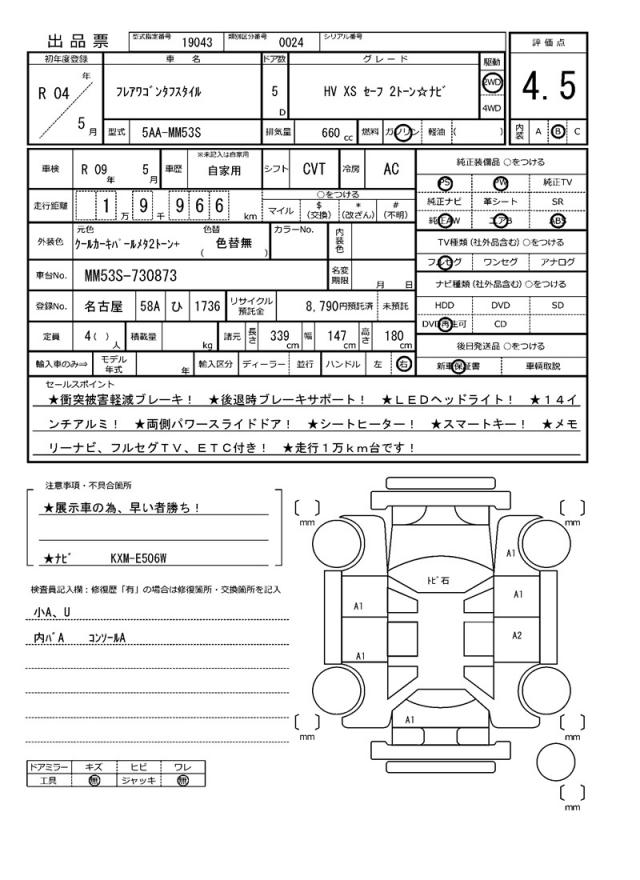 出品票 型式指定番号 19043 類別区分番号 0024 シリアル番号
初年度登録 車名 ドア数 グレード 駆動 評価点
R 04 年 5 月 フレアワゴンタフスタイル 5 D HV XS セーフ 2トーン☆ナビ 2WD 4WD 4.5
型式 5AA-MM53S 排気量 660 cc 燃料 ガソリン 軽油 ( ) 内装 A B C
車検 R 09 年 5 月 車歴 ※未記入は自家用 自家用 シフト CVT 冷房 AC
走行距離 1 万 9 千 9 6 6 km ○をつける マイル $ (交換) * (改ざん) # (不明)
外装色 元色 クールカーキパールメタ2トーン+ 色替 ( 色替無 ) カラーNo. 内装色
車台No. MM53S-730873 名変期限 月 日
登録No. 名古屋 58A ひ 1736 リサイクル預託金 8,790円預託済 未預託
定員 4( ) 人 積載量 kg 諸元 長さ 339 cm 幅 147 cm 高さ 180 cm
輸入車のみ⇒ モデル年式 年 輸入区分 ディーラー 並行 ハンドル 左 右
純正装備品 ○をつける
PS PW 純正TV
純正ナビ 革シート SR
純正AW エアB ABS
TV種類 (社外品含む) ○をつける
フルセグ ワンセグ アナログ
ナビ種類 (社外品含む) ○をつける
HDD DVD SD
DVD再生可 CD
後日発送品 ○をつける
新車保証書 車輌取説
セールスポイント
★衝突被害軽減ブレーキ! ★後退時ブレーキサポート! ★LEDヘッドライト! ★14イ
ンチアルミ! ★両側パワースライドドア! ★シートヒーター! ★スマートキー! ★メモ
リーナビ、フルセグTV、ETC付き! ★走行1万km台です!
注意事項・不具合箇所
★展示車の為、早い者勝ち!
★ナビ KXM-E506W
検査員記入欄:修復歴「有」の場合は修復箇所・交換箇所を記入
小A、U
内バA コンソールA
ドアミラー キズ ヒビ ワレ
工具 無 ジャッキ 無
[ ] mm
[ ] mm
A1
トビ石
A1
A1
A2
A1
A1
[ ] mm
[ ] mm
[ ] mm